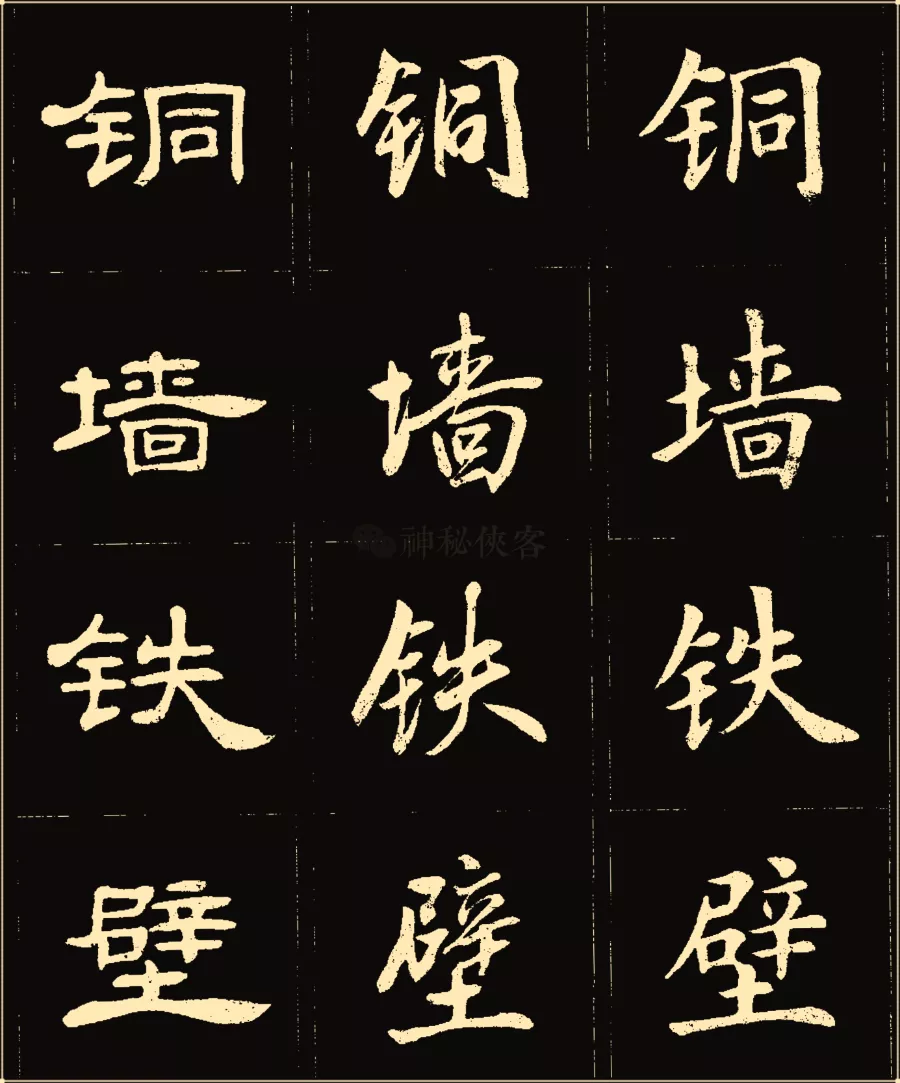 铜铜铜
墙墙墙
神秘侠客
铁铁铁
壁壁壁